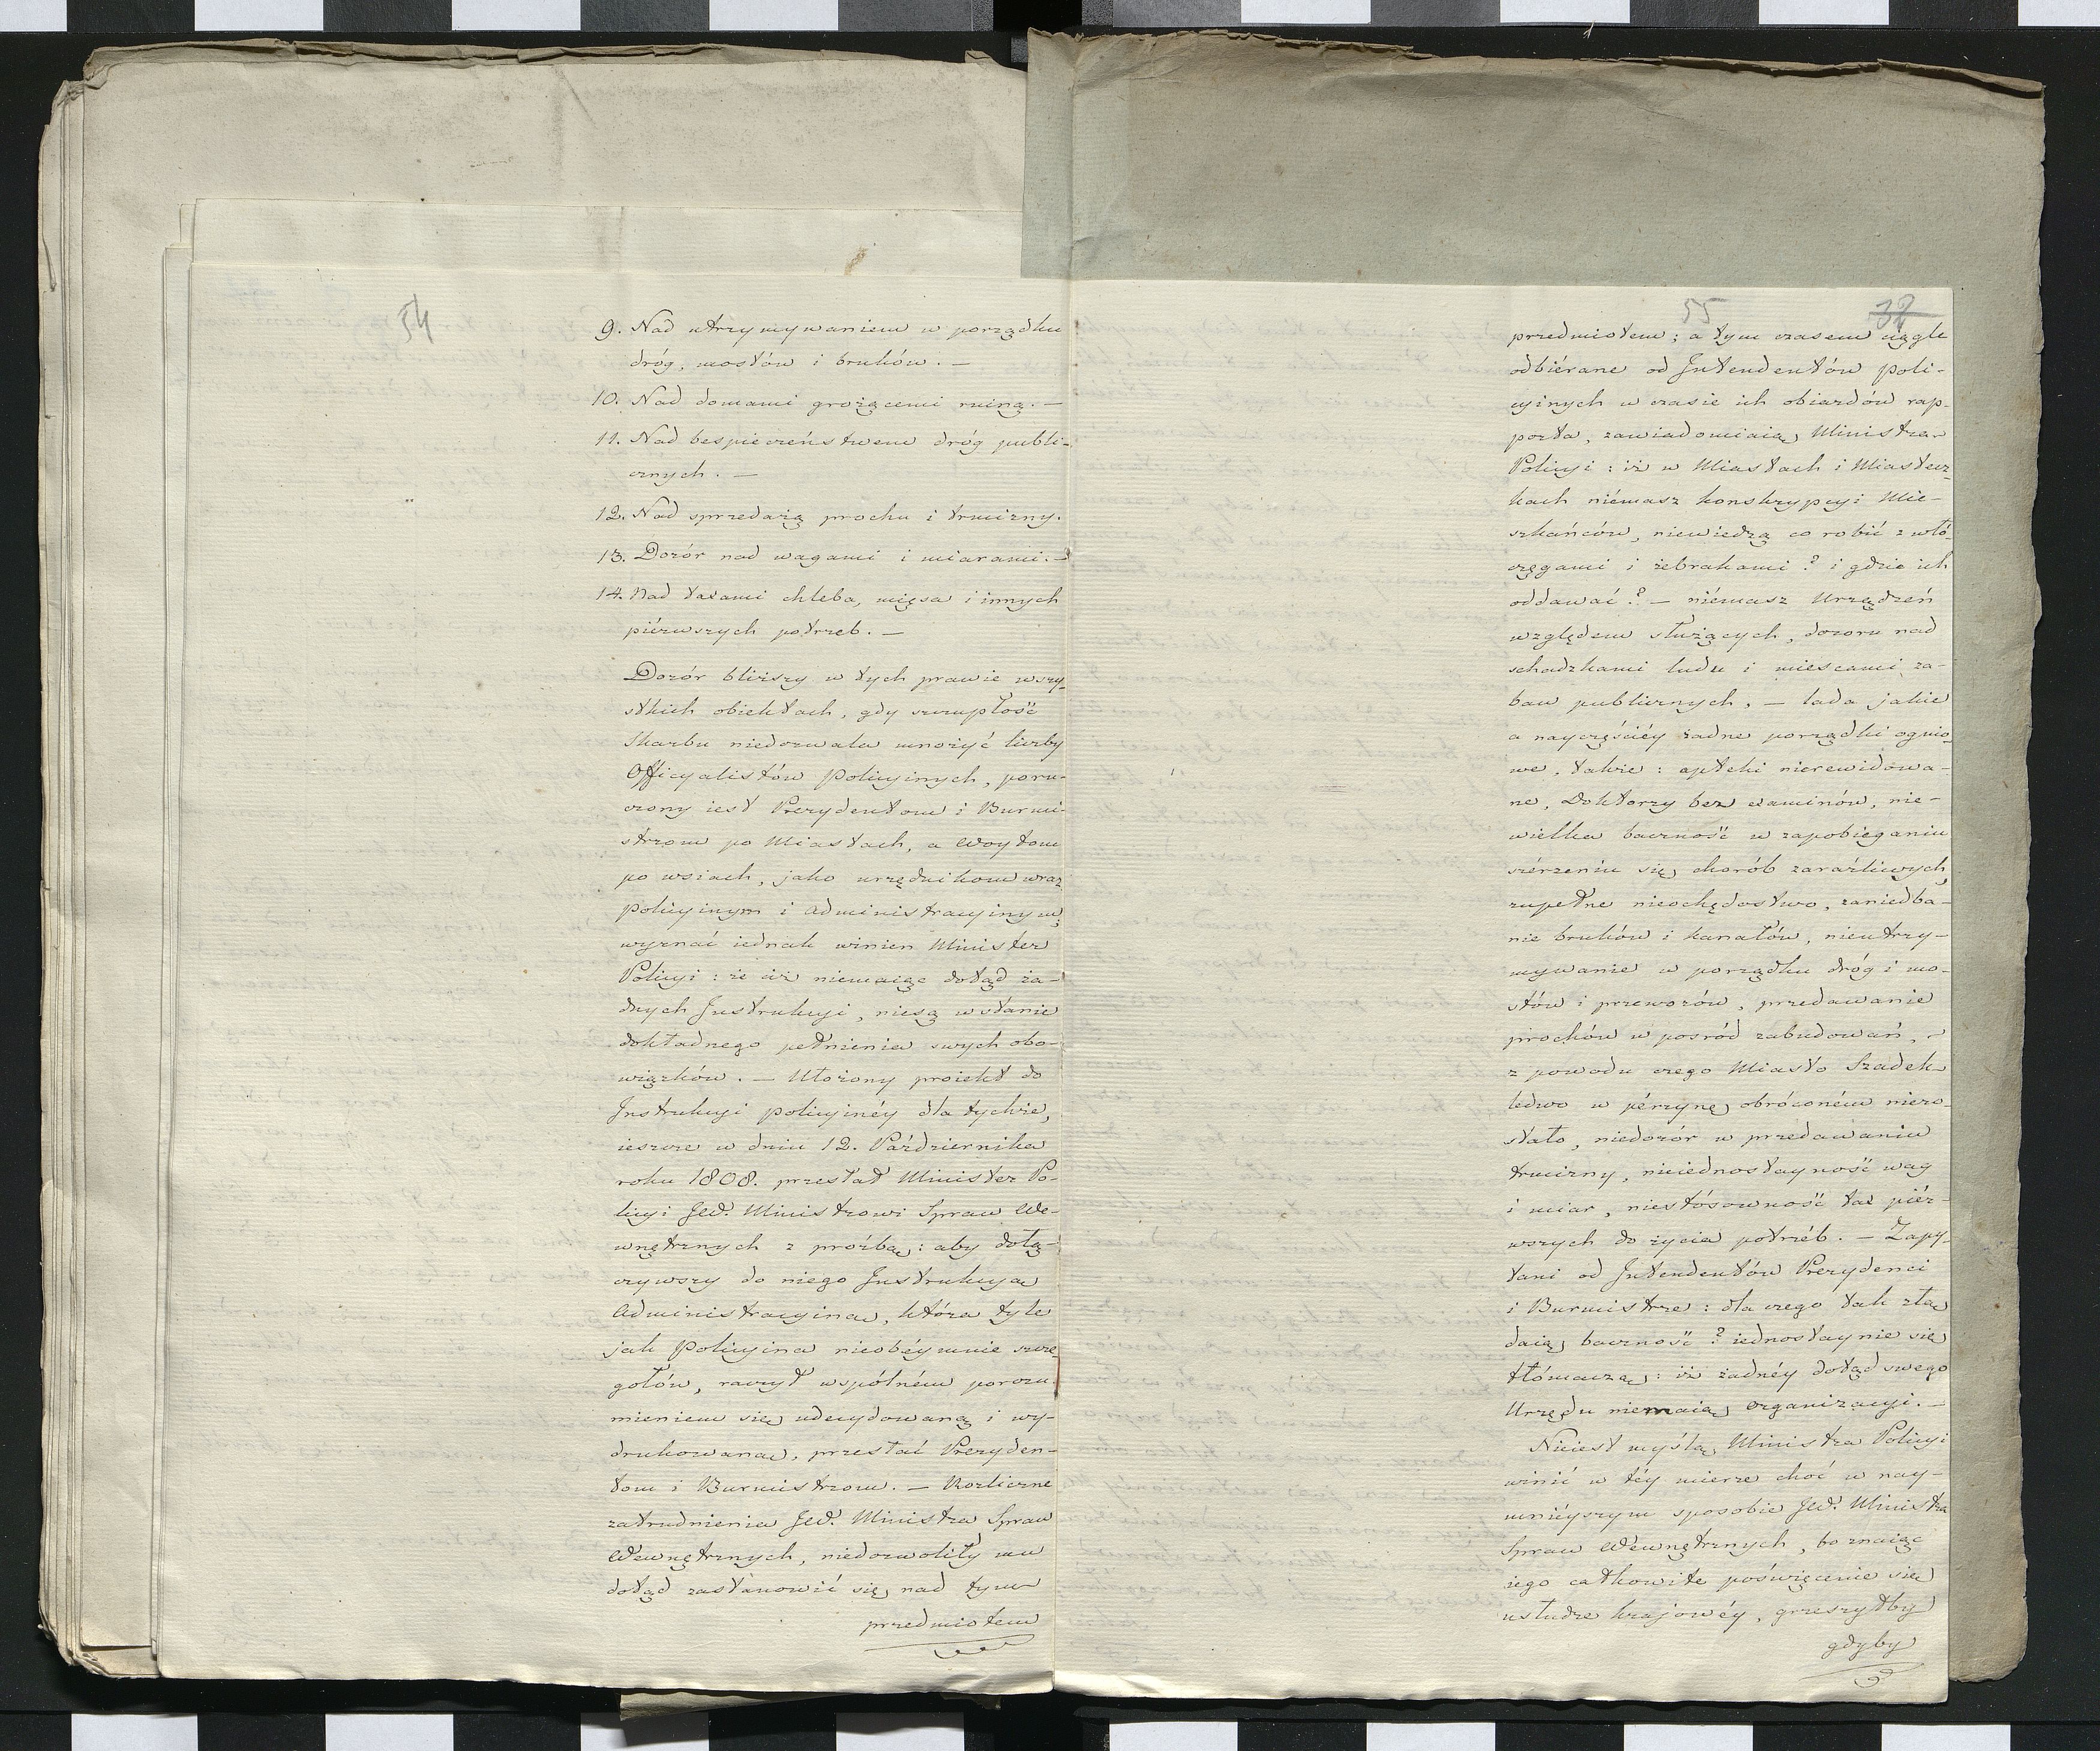 54
9. Nad utrzymywaniem w porządku
dróg, mostów i bruków. —
10. Nad domami grożącemi ruiną. —
11. Nad bespieczeństwem dróg publi-
cznych. —
12. Nad sprzedażą prochu i trucizny.
13. Dozór nad wagami i miarami. —
14. Nad taxami chleba, mięsa i innych
piérwszych potrzeb. —
Dozór bliższy w tych prawie wszy-
stkich obiektach, gdy szczupłość
Skarbu niedozwala mnożyć liczby
Officyalistów Policyinych, poru-
czony iest Prezydentom i Burmi-
strzom po Miastach, a Woytom
po wsiach, jako urzędnikom wraz
Policyinym i Administracyinym,
wyznać iednak winien Minister
Policyi: że ciż niemaiąc dotąd ża-
dnych Instrukcyi, niesą wstanie
dokładnego pełnienia swych obo-
wiązków. — Ułożony proiekt do
Instrukcyi policyinéy dla tychże,
ieszcze w dniu 12. Października
roku 1808. przesłał Minister Po-
licyi JW. Ministrowi Spraw We-
wnętrznych z proźbą: aby dołą-
czywszy do niego Instrukcyą
Administracyiną, która tyle
jak Policyina nieobéymuie szcze-
gołów, raczył wspólném porozu-
mieniem się udecydowaną i wy-
drukowaną, przesłać Prezyden-
tom i Burmistrzom. — Rozliczne
zatrudnienia JW. Ministra Spraw
Wewnętrznych, niedozwoliły mu
dotąd zastanowić się nad tym
przedmiotem
55
32
przedmiotem; a tym czasem ciągle
odbiérane od Intendentów Poli-
cyinych w czasie ich obiazdów rap-
porta, zawiadomiaią Ministra
Policyi: iż w Miastach i Miastecz-
kach niémasz konskrypcyi Mie-
szkańców, niewiedzą co robić z włó-
częgami i żebrakami? i gdzie ich
oddawać? — niémasz Urządzeń
względem służących, dozoru nad
schadzkami ludu i miescami za-
baw publicznych, — lada jakie
a nayczęściéy żadne porządki ognio-
we, takie: apteki nierewidowa-
ne, Doktorzy bez examinów, nie-
wielka baczność w zapobieganiu
szérzeniu się chorób zaraźliwych,
zupełne nieochędostwo, zaniedba-
nie bruków i kanałów, nieutrzy-
mywanie w porządku dróg i mo-
stów i przewozów, przedawanie
prochów w pośród zabudowań, —
z powodu czego Miasto Szadek
ledwo w pérzynę obróconém niezo-
stało, niedozór w przedawaniu
trucizny, nieiednostayność wag
i miar, niestósowność tax piér-
wszych do życia potrzéb. — Zapy-
tani od Intendentów Prezydenci
i Burmistrze: dla czego tak złą
daią baczność? iednostaynie się
tłómaczą: iż żadnéy dotąd swego
Urzędu niemaią Organizacyi. —
Nieiest myślą Ministra Policyi
winić w téy mierze choć w nay-
mniéyszym sposobie JW. Ministra
Spraw Wewnętrznych, bo znaiąc
iego całkowite poświęcenie się
usłudze krajowéy, grzeszyłby
gdyby